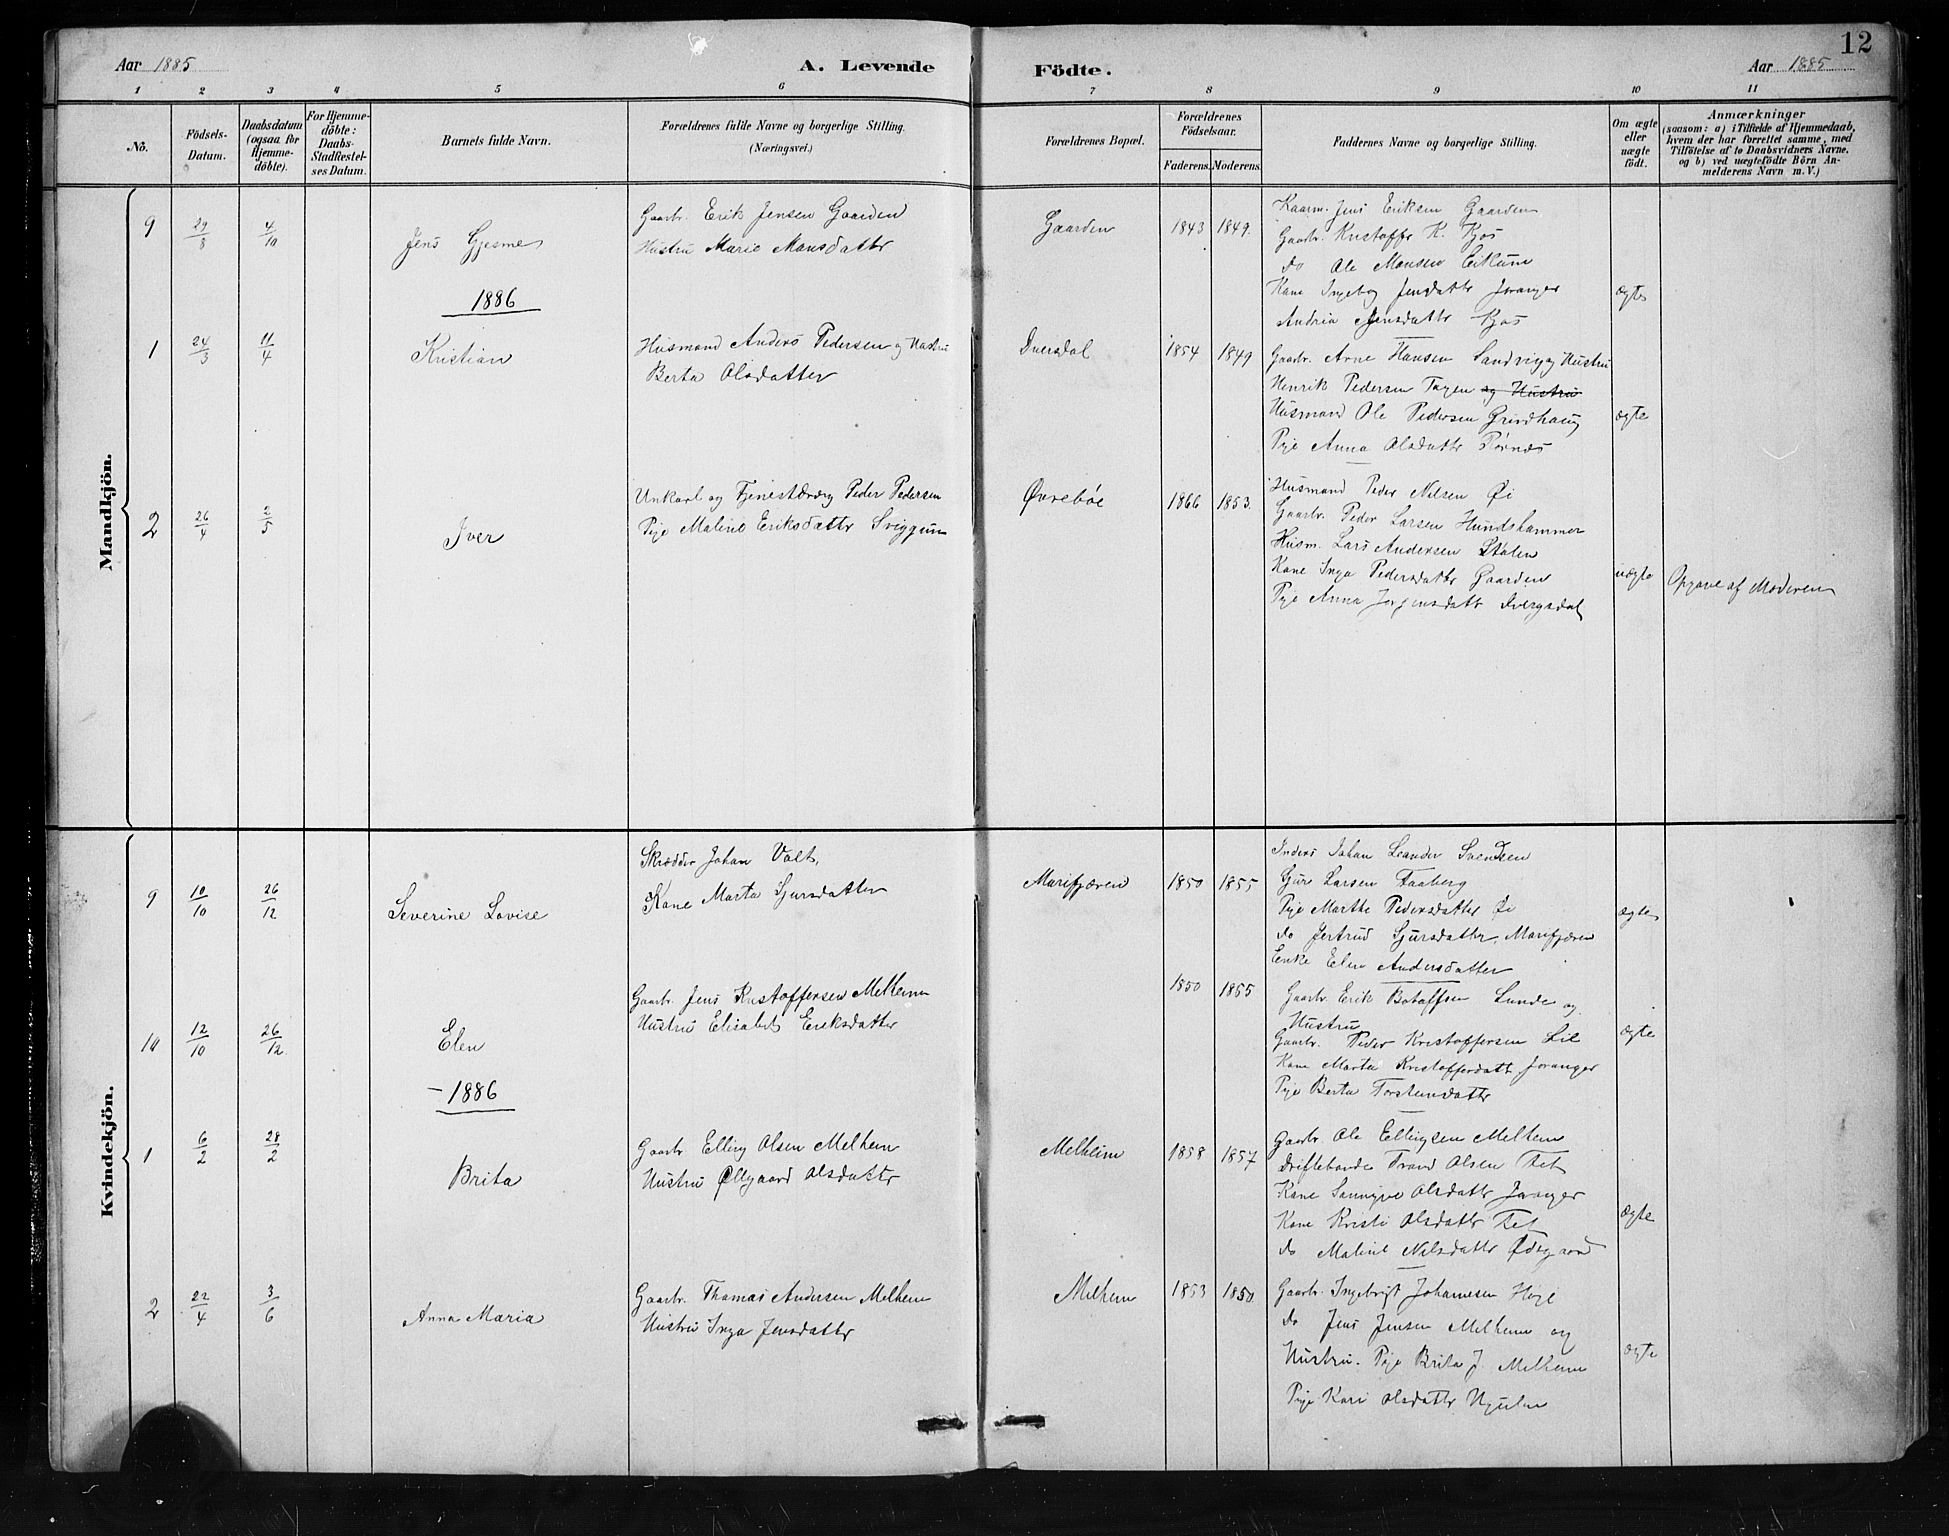 12
Aar 1885
A. Levende Födte.
Aar 1885
1 2 3 4 5 6 7 8 9 10 11
No.
Födsels-Datum.
Daabsdatum (ogsaa for Hjemme-döbte).
For Hjemme-döbte: Daabs-Stadfæstel-ses Datum.
Barnets fulde Navn.
Forældrenes fulde Navne og borgerlige Stilling. (Næringsvei.)
Forældrenes Bopæl.
Forældrenes Födselsaar.
Faderens. Moderens.
Faddernes Navne og borgerlige Stilling.
Om ægte eller uægte födt.
Anmærkninger
(saasom: a) i Tilfælde af Hjemmedaab,
hvem der har forrettet samme, med
Tilföielse af to Daabsvidners Navne.
og b) ved uægtefödte Börn An-
melderens Navn m. V.)
Mandkjön.
9 29/8 4/10 Jens Gjesme
Gaarbr. Erik Jensen Gaarden
Hustru Marie Monsdattr
Gaarden 1843 1849.
Kaarm. Jens Eriksen Gaarden
Gaarbr. Kristoffr K. Kjos
do Ole Monsen Eikum
Kone Ingebog Jensdattr Joranger
Andria Jensdattr Kjos
ægte
1886
1 24/3 11/4 Kristian
Husmand Anders Pedersen og Hustru
Berta Olsdatter
Dversdal 1854 1849
Gaarbr. Arne Hansen Sandvig og Hustru
Henrik Pedersen Tagen og Hustru
Husmand Ole Pedersen Grindhaug
Pige Anna Olsdattr Pørnes
ægte
2 26/4 2/5 Iver
Unkarl og Tjenestdræng Peder Pedersen
Pige Maline Eriksdattr Sviggum
Øvrebøe 1866 1853.
Husmand Peder Nilsen Øi
Gaarbr. Peder Larsen Hundshammer
Husm. Lars Andersen Stølen
Kone Inga Pedersdattr Gaarden
Pige Anna Jørgensdattr Dvergsdal
uægte
Opgave af Moderen
Kvindekjön.
9 10/10 26/12 Severine Lovise
Skrædder Johan Volt,
Kone Marta Sjursdatter
Marifjæren 1850 1855
Inders Johan Leander Svendsen
Sjur Larsen Faaberg
Pige Marthe Pedersdatter Øi
do Jertrud Sjursdatter, Marifjæren
Enke Elen Andersdatter
ægte
10 12/10 26/12 Elen
Gaarbr. Jens Kristoffersen Melhem
Hustru Elisabet Eriksdatter
1850 1855
Gaarbr. Erik Botolfsen Lunde og
Hustru
Gaarbr. Peder Kristoffersen Lil
Kone Marta Kristofferdatt Joranger
Pige Berta Torstensdattr
ægte
- 1886
1 6/2 28/2 Brita
Gaarbr Elling Olsen Melhem
Hustru Ølegaard Olsdattr
Melheim 1858 1857
Gaarbr Ole Ellingsen Melhem
Driftebonde Trond Olsen Fet
Kone Sunnive Olsdattr Joranger
Kone Kristi Olsdattr Fet
do Maline Nilsdattr Ødegaard
ægte
2 22/4 3/6 Anna Maria
Gaarbr. Thomas Andersen Melhem
Hustru Inga Jensdattr
Melhem 1853 1850
Gaarbr. Ingebrigt Johannesen Høje
do Jens Jensen Melhem og
Hustru. Pige Brita J. Melhem
Pige Kari Olsdattr
ægte